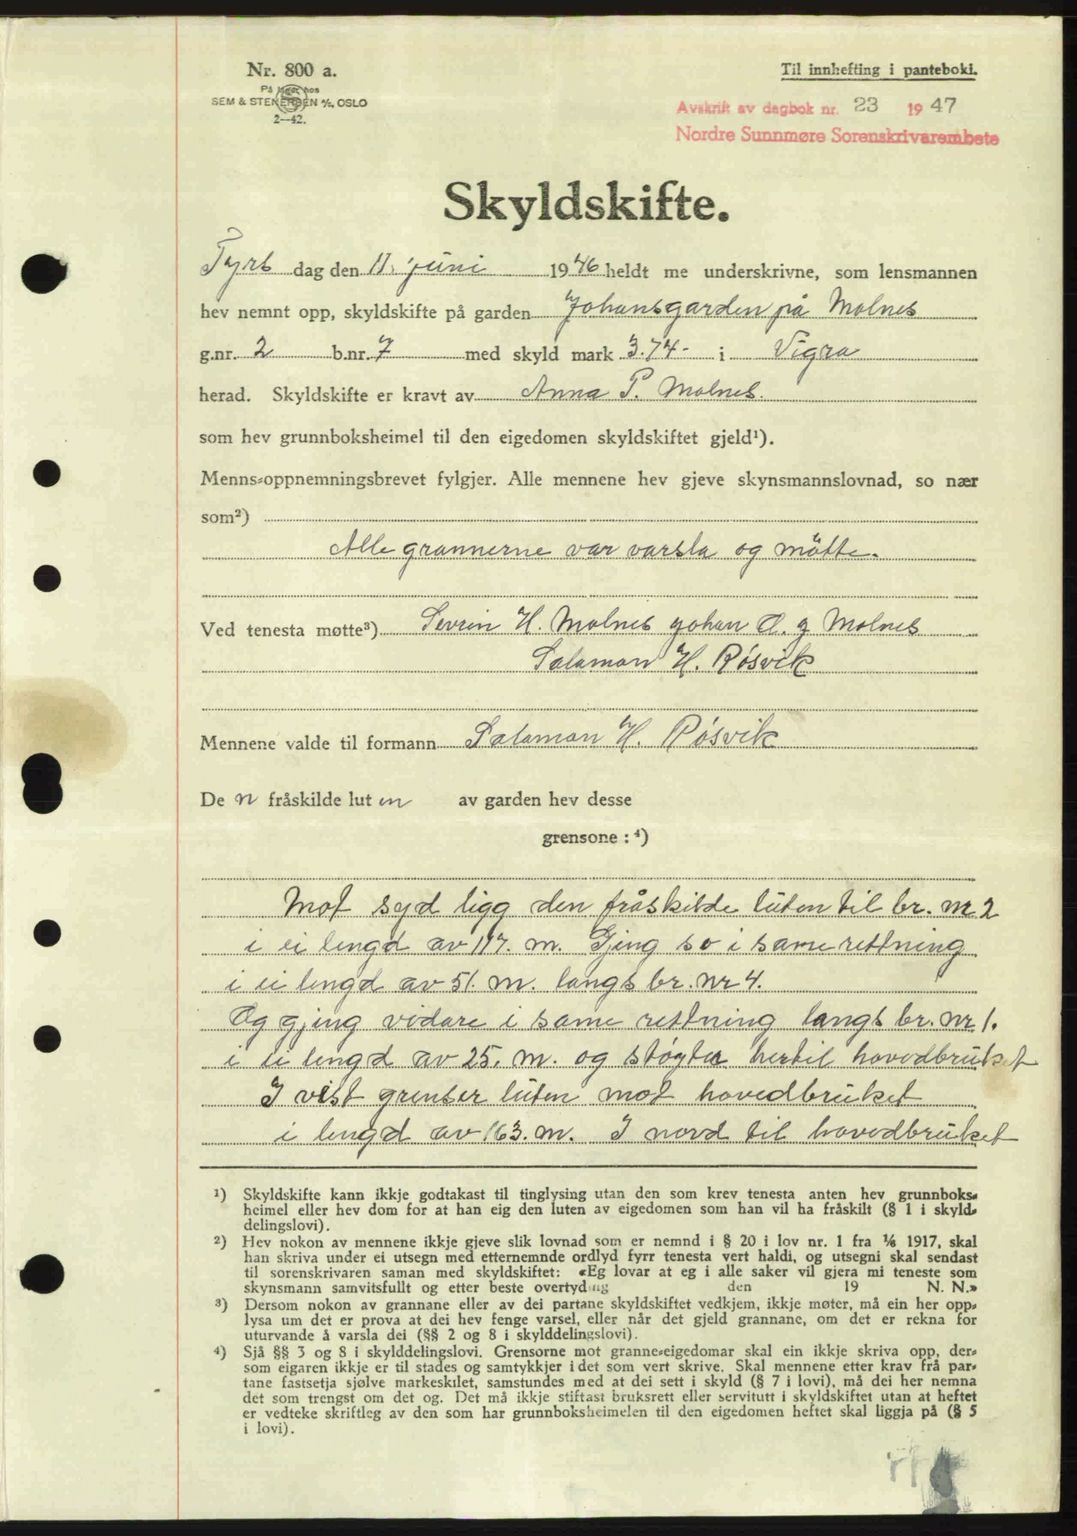 Nr. 800 a.
På lager hos
SEM & STENERSEN A/S, OSLO
2—42.
Til innhefting i panteboki.
Avskrift av dagbok nr. 23 1947
Nordre Sunnmøre Sorenskrivarembete
Skyldskifte.
Tyrs dag den 11. juni 1946 heldt me underskrivne, som lensmannen
hev nemnt opp, skyldskifte på garden Johansgarden på Molnes
g.nr. 2 b.nr. 7 med skyld mark 3.74- i Vigra
herad. Skyldskifte er kravt av Anna P. Molnes.
som hev grunnboksheimel til den eigedomen skyldskiftet gjeld¹).
Menns-oppnemningsbrevet fylgjer. Alle mennene hev gjeve skynsmannslovnad, so nær
som²)
Alle grannerne var varsla og mötte.
Ved tenesta møtte³) Sevrin H. Molnes Johan O. g Molnes
Salamon H. Røsvik
Mennene valde til formann Salamon H. Røsvik
De n fråskilde lut en av garden hev desse
grensone : ⁴)
Mot syd ligg den fråskilde luten til br. nr 2
i ei lengd av 117. m. Gjeng so i same rettning
i ei lengd av 51. m. langs br. nr 4.
Og gjeng vidare i same rettning langs br. nr 1.
i ei lengd av 25. m. og støyter hertil hovedbruket
I vest grenser luten mot hovedbruket
i lengd av 163. m. I nord til hovedbruket
¹) Skyldskifte kann ikkje godtakast til tinglysing utan den som krev tenesta anten hev grunnboks-
heimel eller hev dom for at han eig den luten av eigedomen som han vil ha fråskilt (§ 1 i skyld-
delingslovi).
²) Hev nokon av mennene ikkje gjeve slik lovnad som er nemnd i § 20 i lov nr. 1 fra 1/6 1917, skal
han skriva under ei utsegn med etternemnde ordlyd fyrr tenesta vert haldi, og utsegni skal sendast
til sorenskrivaren saman med skyldskiftet: «Eg lovar at eg i alle saker vil gjera mi teneste som
skynsmann samvitsfullt og etter beste overtyding den 19 N. N.»
³) Dersom nokon av grannane eller av dei partane skyldskiftet vedkjem, ikkje møter, må ein her opp-
lysa um det er prova at dei hev fenge varsel, eller når det gjeld grannane, om det er rekna for
uturvande å varsla dei (§§ 2 og 8 i skylddelingslovi).
⁴) Sjå §§ 3 og 8 i skylddelingslovi. Grensorne mot granne-eigedomar skal ein ikkje skriva opp, der-
som eigaren ikkje er til stades og samtykkjer i det som vert skrive. Skal mennene etter krav frå par-
tane fastsetja sjølve markeskilet, samstundes med at dei sett i skyld (§ 7 i lovi), må dei her nemna
det som trengst om det og. Det må ikkje stiftast bruksrett eller servitutt i skyldskiftet utan at heftet
er vedteke skriftleg av den som har grunnboksheimelen til den eigedomen heftet skal liggja på (§ 5
i lovi).